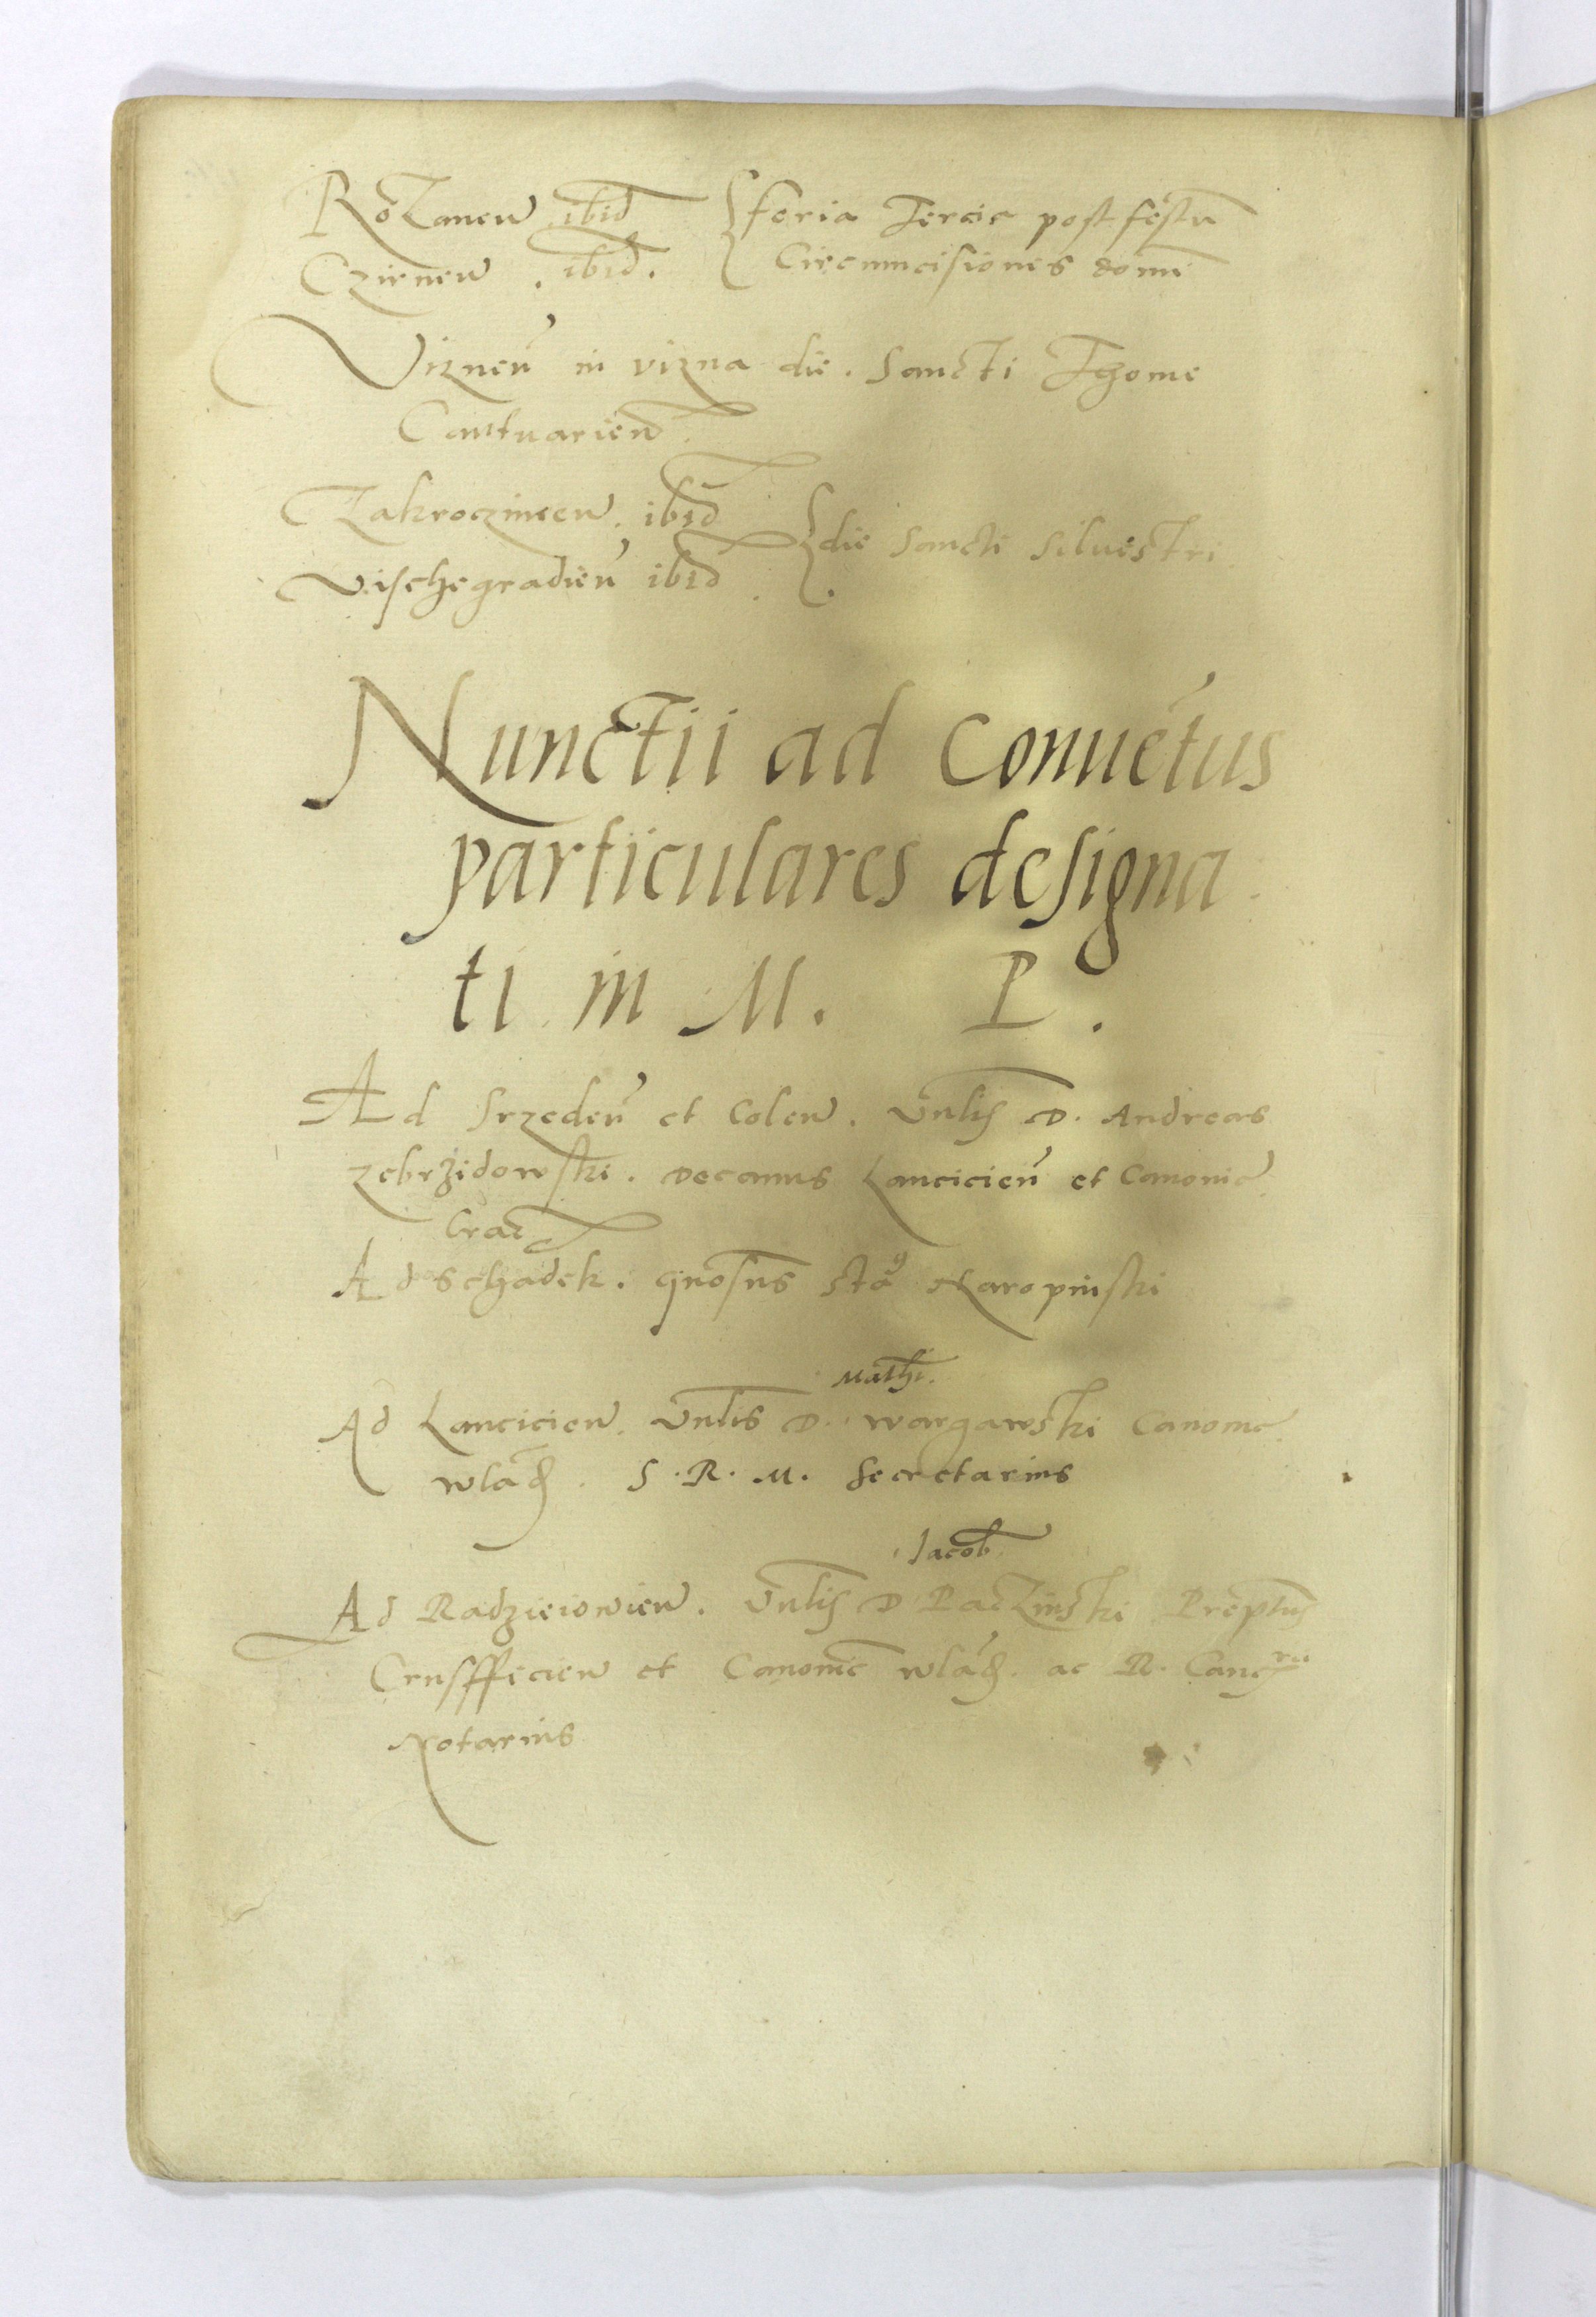 Rozanen ibid { feria Tercia post festu
Czirnen . ibid . Circumcisiones domi
Viznen in vizna die . Sancti Thome
Cantuarien .
Zakroczimen . ibid { die Sancti Silvestri
Vischegradien ibid .
Nunctii ad Conuetus
particulares designa
ti in M. P.
Ad Srzeden et Colen . Vnlis D. Andreas
zebrzidowski . Decanus Lancicien et Canonic
Crac
Ad Schadek . gnosus sta Naropinski
Mathi .
Ad Lancicien . Vnlis D. Wargawski Canonic
wlad . S. R. M. Secretarius
Jacob
Ad Radzieiowien . Vnlis D Paczinski Preptus
Crusfficien et Canonic wlad . ac R. Canc rie
Notarius